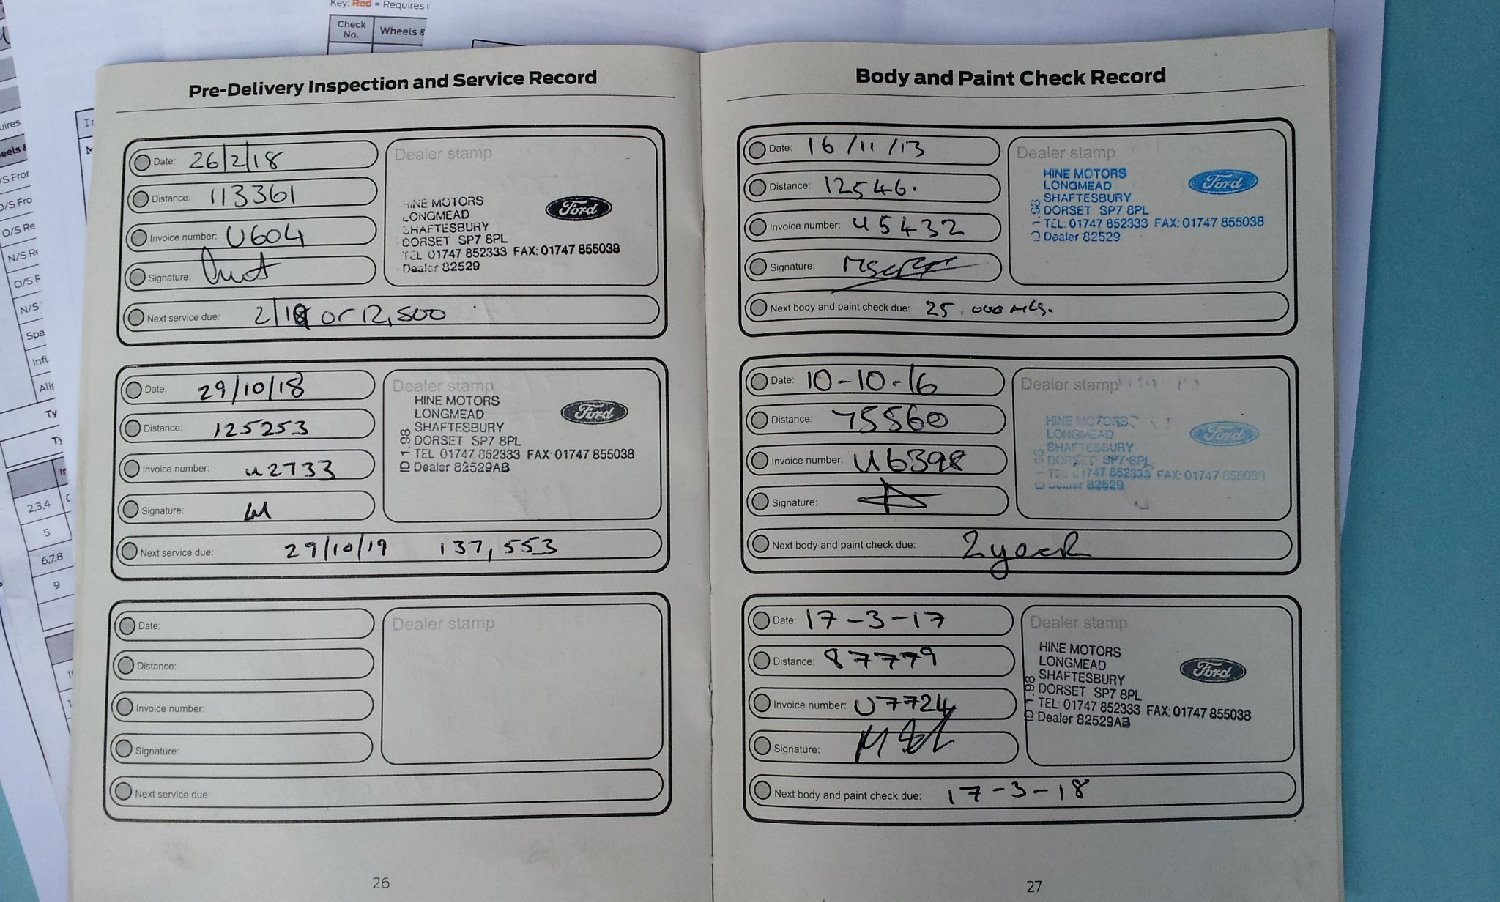 Key: Red = Requires
Check No.
Wheels &
Pre-Delivery Inspection and Service Record
Date: 26/2/18
Distance: 113361
Invoice number: U604
Signature:
Next service due: 2/19 or 12,500
Dealer stamp
HINE MOTORS
LONGMEAD
SHAFTESBURY
DORSET SP7 8PL
TEL 01747 852333 FAX: 01747 855038
Dealer 82529
Ford
Date: 29/10/18
Distance: 125253
Invoice number: u2733
Signature:
Next service due: 29/10/19 137,553
Dealer stamp
HINE MOTORS
LONGMEAD
SHAFTESBURY
DORSET SP7 8PL
TEL 01747 852333 FAX 01747 855038
Dealer 82529AB
Ford
Date:
Distance:
Invoice number:
Signature:
Next service due:
Dealer stamp
26
Body and Paint Check Record
Date: 16/11/13
Distance: 12546.
Invoice number: U5432
Signature:
Next body and paint check due: 25.000 mls.
Dealer stamp
HINE MOTORS
LONGMEAD
SHAFTESBURY
DORSET SP7 8PL
TEL: 01747 852333 FAX: 01747 855038
Dealer 82529
Ford
Date: 10-10-16
Distance: 75560
Invoice number: U6398
Signature:
Next body and paint check due: 2 year
Dealer stamp
HINE MOTORS
LONGMEAD
SHAFTESBURY
DORSET SP7 8PL
TEL 01747 852333 FAX: 01747 855038
Dealer 82529
Ford
Date: 17-3-17
Distance: 87779
Invoice number: U7724
Signature:
Next body and paint check due: 17-3-18
Dealer stamp
HINE MOTORS
LONGMEAD
SHAFTESBURY
DORSET SP7 8PL
TEL: 01747 852333 FAX: 01747 855038
Dealer 82529AB
Ford
27